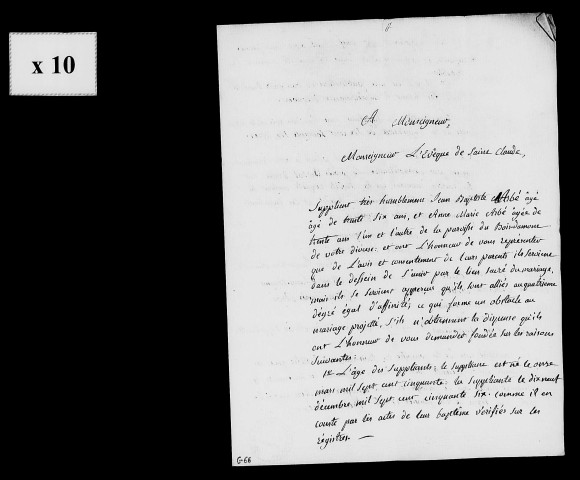 x 10
A Monseigneur,
Monseigneur L'Evêque de Saint Claude,
Supplient très humblement Jean Baptiste Arbé âgé
âgé de trente six ans, et Anne Marie Arbé âgée de
trente ans l'un et l'autre de la paroisse du Boisdamont
de votre diocese: et ont L'honneur de vous representer
que de L'avis et consentement de leurs parents ils seroient
dans le dessein de S'unir par le lien sacré du mariage,
mais ils se seroient apperçus qu'ils sont alliés au quatrieme
dégré égal d'affinité; ce qui forme un obstacle au
mariage projetté, s'ils n'obtiennent la dispense qu'ils
ont L'honneur de vous demander fondée sur les raisons
suivantes.
1e L'âge des Suppliants; le suppliant est né le onze
mars mil sept cent cinquante: la Suppliante le dix neuf
décembre mil sept cent cinquante six. comme il en
conste par les actes de leur baptême vérifiés sur les
régistres. —
G-66